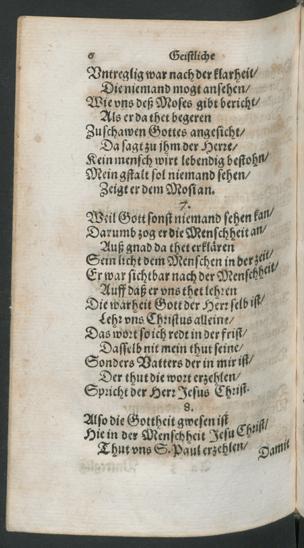 6 Geistliche
Vntreglig war nach der klarheit/
Die niemand mogt ansehen/
Wie vns deß Moses gibt bericht/
Als er da thet begeren
Zuschawen Gottes angesicht/
Da sagt zu jhm der Herre/
Kein mensch wirt lebendig bestohn/
Mein gstalt sol niemand sehen/
Zeigt er dem Mosi an.
7.
Weil Gott sonst niemand sehen kan/
Darumb zog er die Menschheit an/
Auß gnad da thet erklären
Sein licht dem Menschen in der zeit/
Er war sichtbar nach der Menschheit/
Auff daß er vns thet lehren
Die warheit Gott der Herr selb ist/
Lehr vns Christus alleine/
Das wort so ich redt in der frist/
Dasselb nit mein thut seine/
Sonders Vatters der in mir ist/
Der thut die wort erzehlen/
Spricht der Herr Jesus Christ.
8.
Also die Gottheit gwesen ist
Hie in der Menschheit Jesu Christ/
Thut vns S. Paul erzehlen/
Damit